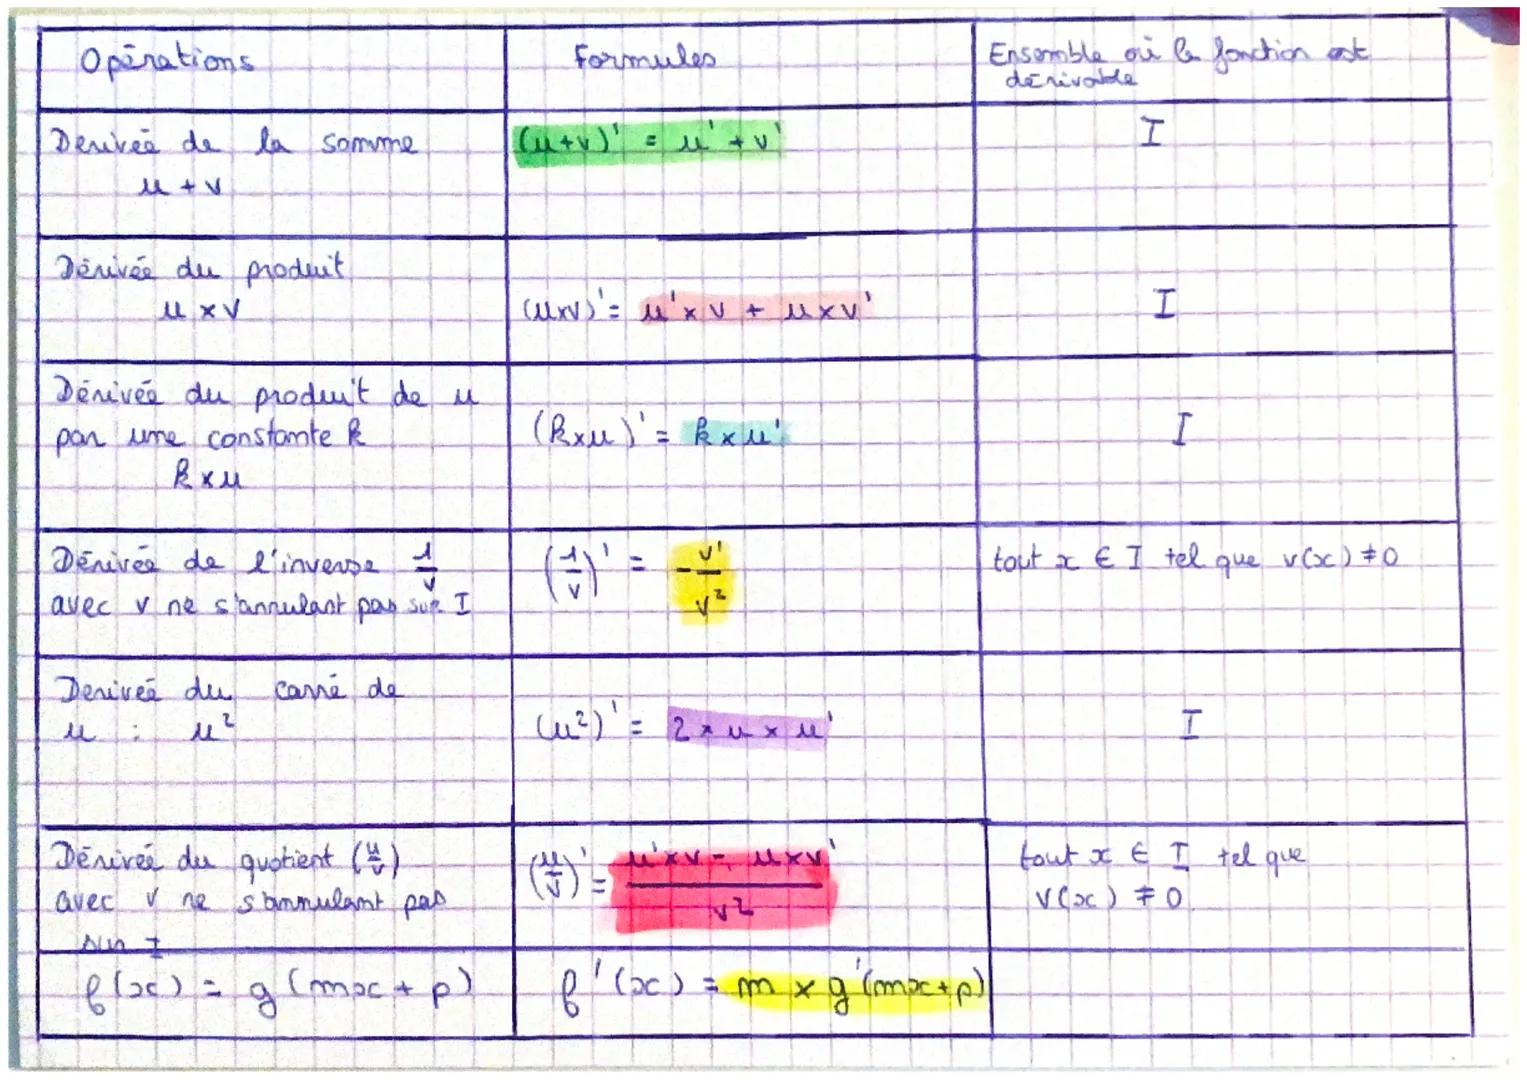 Opérations
Formules
Ensemble où la fonction est
dérivable
Derivée de la somme
u + v
(u+v)' = u' + v'
I
Dérivée du produit
u x v
(uxv)' = u' x v + u x v'
I
Dérivée du produit de u
par une constante k
k x u
(kxu)' = k x u'
I
Dérivée de l'inverse 1/v
avec v ne s'annulant pas sur I
(1/v)' = - v'/v²
tout x ∈ I tel que v(x) ≠ 0
Derivée du carré de
u : u²
(u²)' = 2 x u x u'
I
Dérivée du quotient (u/v)
avec v ne s'annulant pas
sur I
(u/v)' = u'xv - uxv' / v²
tout x ∈ I tel que
v(x) ≠ 0
f(x) = g(mx + p)
f'(x) = m x g'(mx+p)